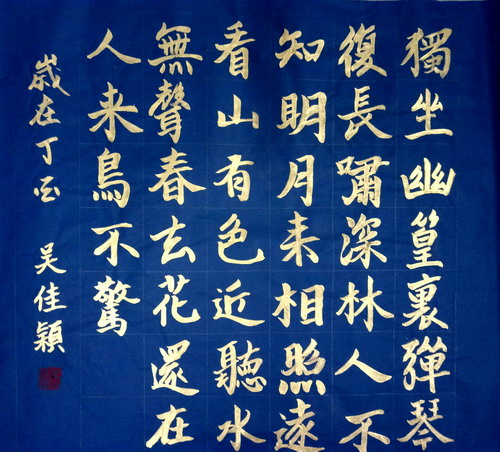 獨坐幽篁裏彈琴
復長嘯深林人不
知明月来相照遠
看山有色近聽水
無聲春去花還在
人来鳥不驚
歲在丁酉 吴佳穎